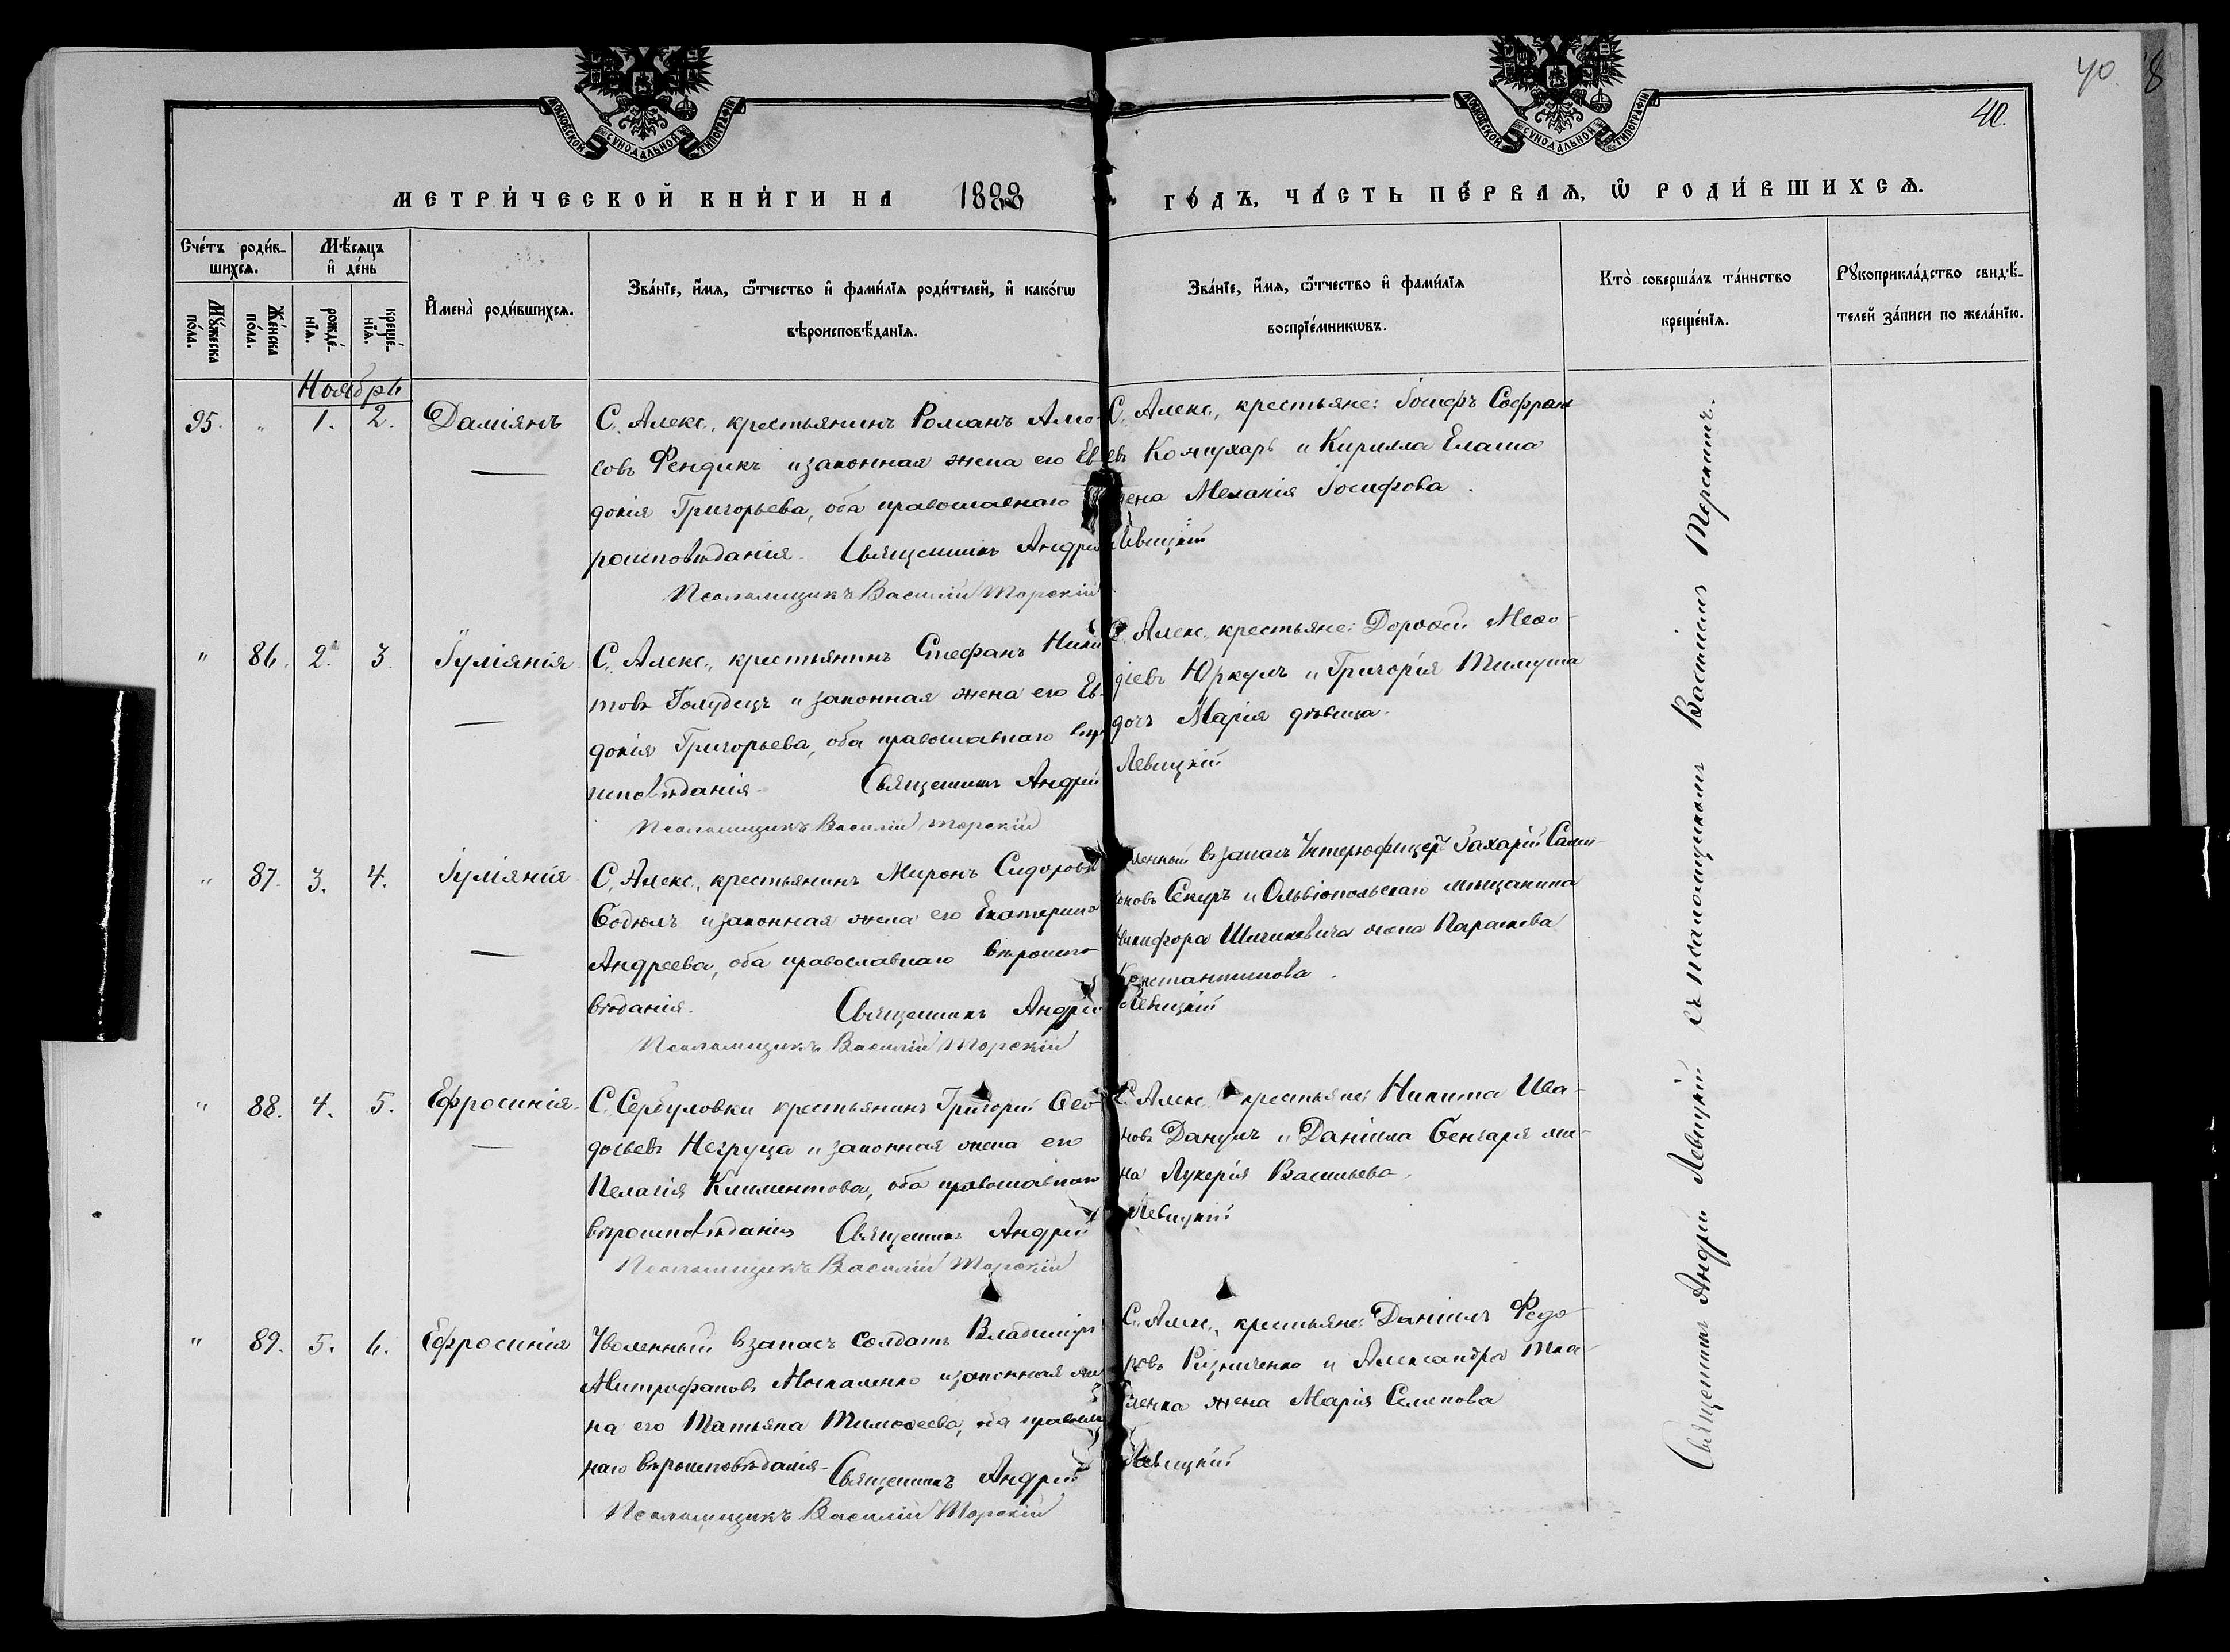 40. 8
40.
МОСКОВСКОЙ СѴНОДАЛЬНОЙ ТИПОГРАФІИ
МОСКОВСКОЙ СѴНОДАЛЬНОЙ ТИПОГРАФІИ
МЕТРИ́ЧЕСКОЙ КНИ́ГИ НА 1888 ГО́ДЪ, ЧА́СТЬ ПЕ́РВАѦ, Ѽ РОДИ́ВШИХСѦ.
Сче́тъ роди́в-
шихсѧ.
Мѣ́сѧцъ
и де́нь
Мꙋ́жеска по́ла.
Же́нска по́ла.
рожде́-
нїѧ.
креще́-
нїѧ.
Имена̀ роди́вшихсѧ.
Зва́нїе, и҆́мѧ, ѻ҆́тчество и҆ фами́лїѧ роди́телей, и҆ како́гѡ
вѣроисповѣ́данїѧ.
Зва́нїе, и҆́мѧ, ѻ҆́тчество и҆ фами́лїѧ
воспрїе́мникѡвъ.
Кто̀ соверша́лъ та́инство
креще́нїѧ.
Рꙋкоприкла́дство свидѣ́-
телей за́писи по жела́нїю.
Ноябрь
95. " 1. 2. Даміянъ
С. Алекс., крестьянинъ Романъ Амо-
совъ Фендикъ и законная жена его Ев-
докія Григорьева, оба православнаго
роисповѣданія. Священникъ Андрей Левицкій
Псаломщикъ Василій Торскій
С. Алекс., крестьяне: Іосифъ Софрон
евъ Комухарь и Кирилла Елаша
жена Меланія Іосифова.
" 86. 2. 3. Іуліянія
С. Алекс., крестьянинъ Стефанъ Ники
товъ Голудецъ и законная жена его Ев-
докія Григорьева, оба православнаго вѣр
исповѣданія. Священникъ Андрей Левицкій
Псаломщикъ Василій Торскій
С. Алекс., крестьяне: Дороѳей Меѳо-
діевъ Юркулъ и Григорія Тимуша
дочь Марія дѣвица.
" 87. 3. 4. Іуліянія
С. Алекс., крестьянинъ Миронъ Сидоровъ
Бодюлъ и законная жена его Екатерина
Андреева, оба православнаго вѣроиспо-
вѣданія. Священникъ Андрей Левицкій
Псаломщикъ Василій Торскій
ленный въ запасъ Унтерофицеръ Захарій
Секиръ и Ольвіопольскаго мѣщанина
Никифора Шичкевича жена Параскева
Константинова.
" 88. 4. 5. Ефросинія
С. Сербуловки крестьянинъ Григорій Ѳео-
досьевъ Негруца и законная жена его
Пелагія Климентова, оба православнаго
вѣроисповѣданія Священникъ Андрей Левицкій
Псаломщикъ Василій Торскій
С. Алекс. крестьяне: Никита Ива-
новъ Данулъ и Даніила Бенгаря же-
на Лукерія Васильева.
" 89. 5. 6. Ефросинія
Уволенный въ запасъ Солдатъ Владиміръ
Митрофановъ Москаленко и законная же-
на его Татьяна Тимоѳеева, оба православ
наго вѣроисповѣданія. Священникъ Андрей Левицкій
Псаломщикъ Василій Торскій
С. Алекс., крестьяне: Даніилъ Ѳедо-
ровъ Ризниченко и Александра Тка-
ченка жена Марія Семенова
Священникъ Андрей Левицкій съ псаломщикомъ Василіемъ Торскимъ.